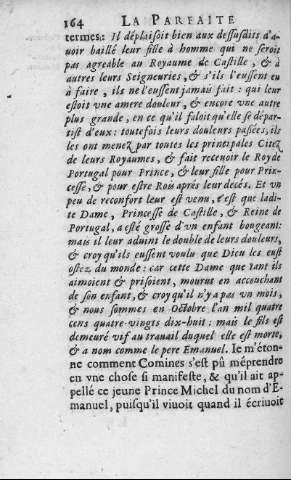 164 LA PARFAITE
termes,: Il déplaisoit bien aux dessusdits d'a-
uoir baillé leur fille à homme qui ne seroit
pas agreable au Royaume de Castille, & à
autres leurs Seigneuries, & s'ils l'eussent eu
à faire, ils ne l'eussent jamais fait: qui leur
estoit vne amere douleur, & encore vne autre
plus grande, en ce qu'il faloit qu'elle se dépar-
tist d'eux: toutefois leurs douleurs passées, ils
les ont menez par toutes les principales Citez
de leurs Royaumes, & fait receuoir le Roy de
Portugal pour Prince, & leur fille pour Prin-
cesse, & pour estre Rois apres leur decés. Et vn
peu de reconfort leur est venu, c'est que ladi-
te Dame, Princesse de Castille, & Reine de
Portugal, a esté grosse d'vn enfant bougeant:
mais il leur aduint le double de leurs douleurs,
& croy qu'ils eussent voulu que Dieu les eust
ostez du monde: car cette Dame que tant ils
aimoient & prisoient, mourut en accouchant
de son enfant, & croy qu'il n'y a pas vn mois,
& nous sommes en Octobre l'an mil quatre
cens quatre-vingts dix-huit: mais le fils est
demeuré vif au travail duquel elle est morte,
& a nom comme le pere Emanuel. Ie m'éton-
ne comment Comines s'est pû méprendre
en vne chose si manifeste, & qu'il ait ap-
pellé ce jeune Prince Michel du nom d'E-
manuel, puisqu'il viuoit quand il écriuoit